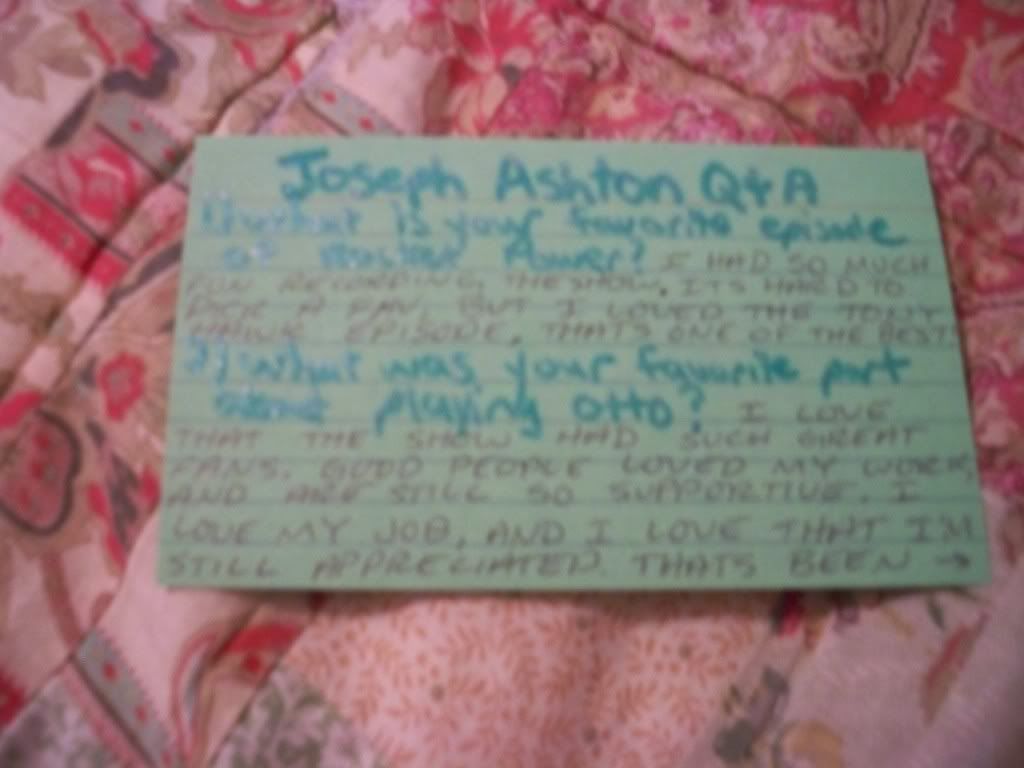 Joseph Ashton Q&A
1) what is your favorite episode
of Rocket Power? I HAD SO MUCH
FUN RECORDING THE SHOW. ITS HARD TO
PICK A FAV, BUT I LOVED THE TONY
HAWK EPISODE. THATS ONE OF THE BEST!
2) what was your favorite part
playing otto? I LOVE
THAT THE SHOW HAD SUCH GREAT
FANS. GOOD PEOPLE LOVED MY WORK
AND ARE STILL SO SUPPORTIVE. I
LOVE MY JOB, AND I LOVE THAT I'M
STILL APPRECIATED. THATS BEEN →